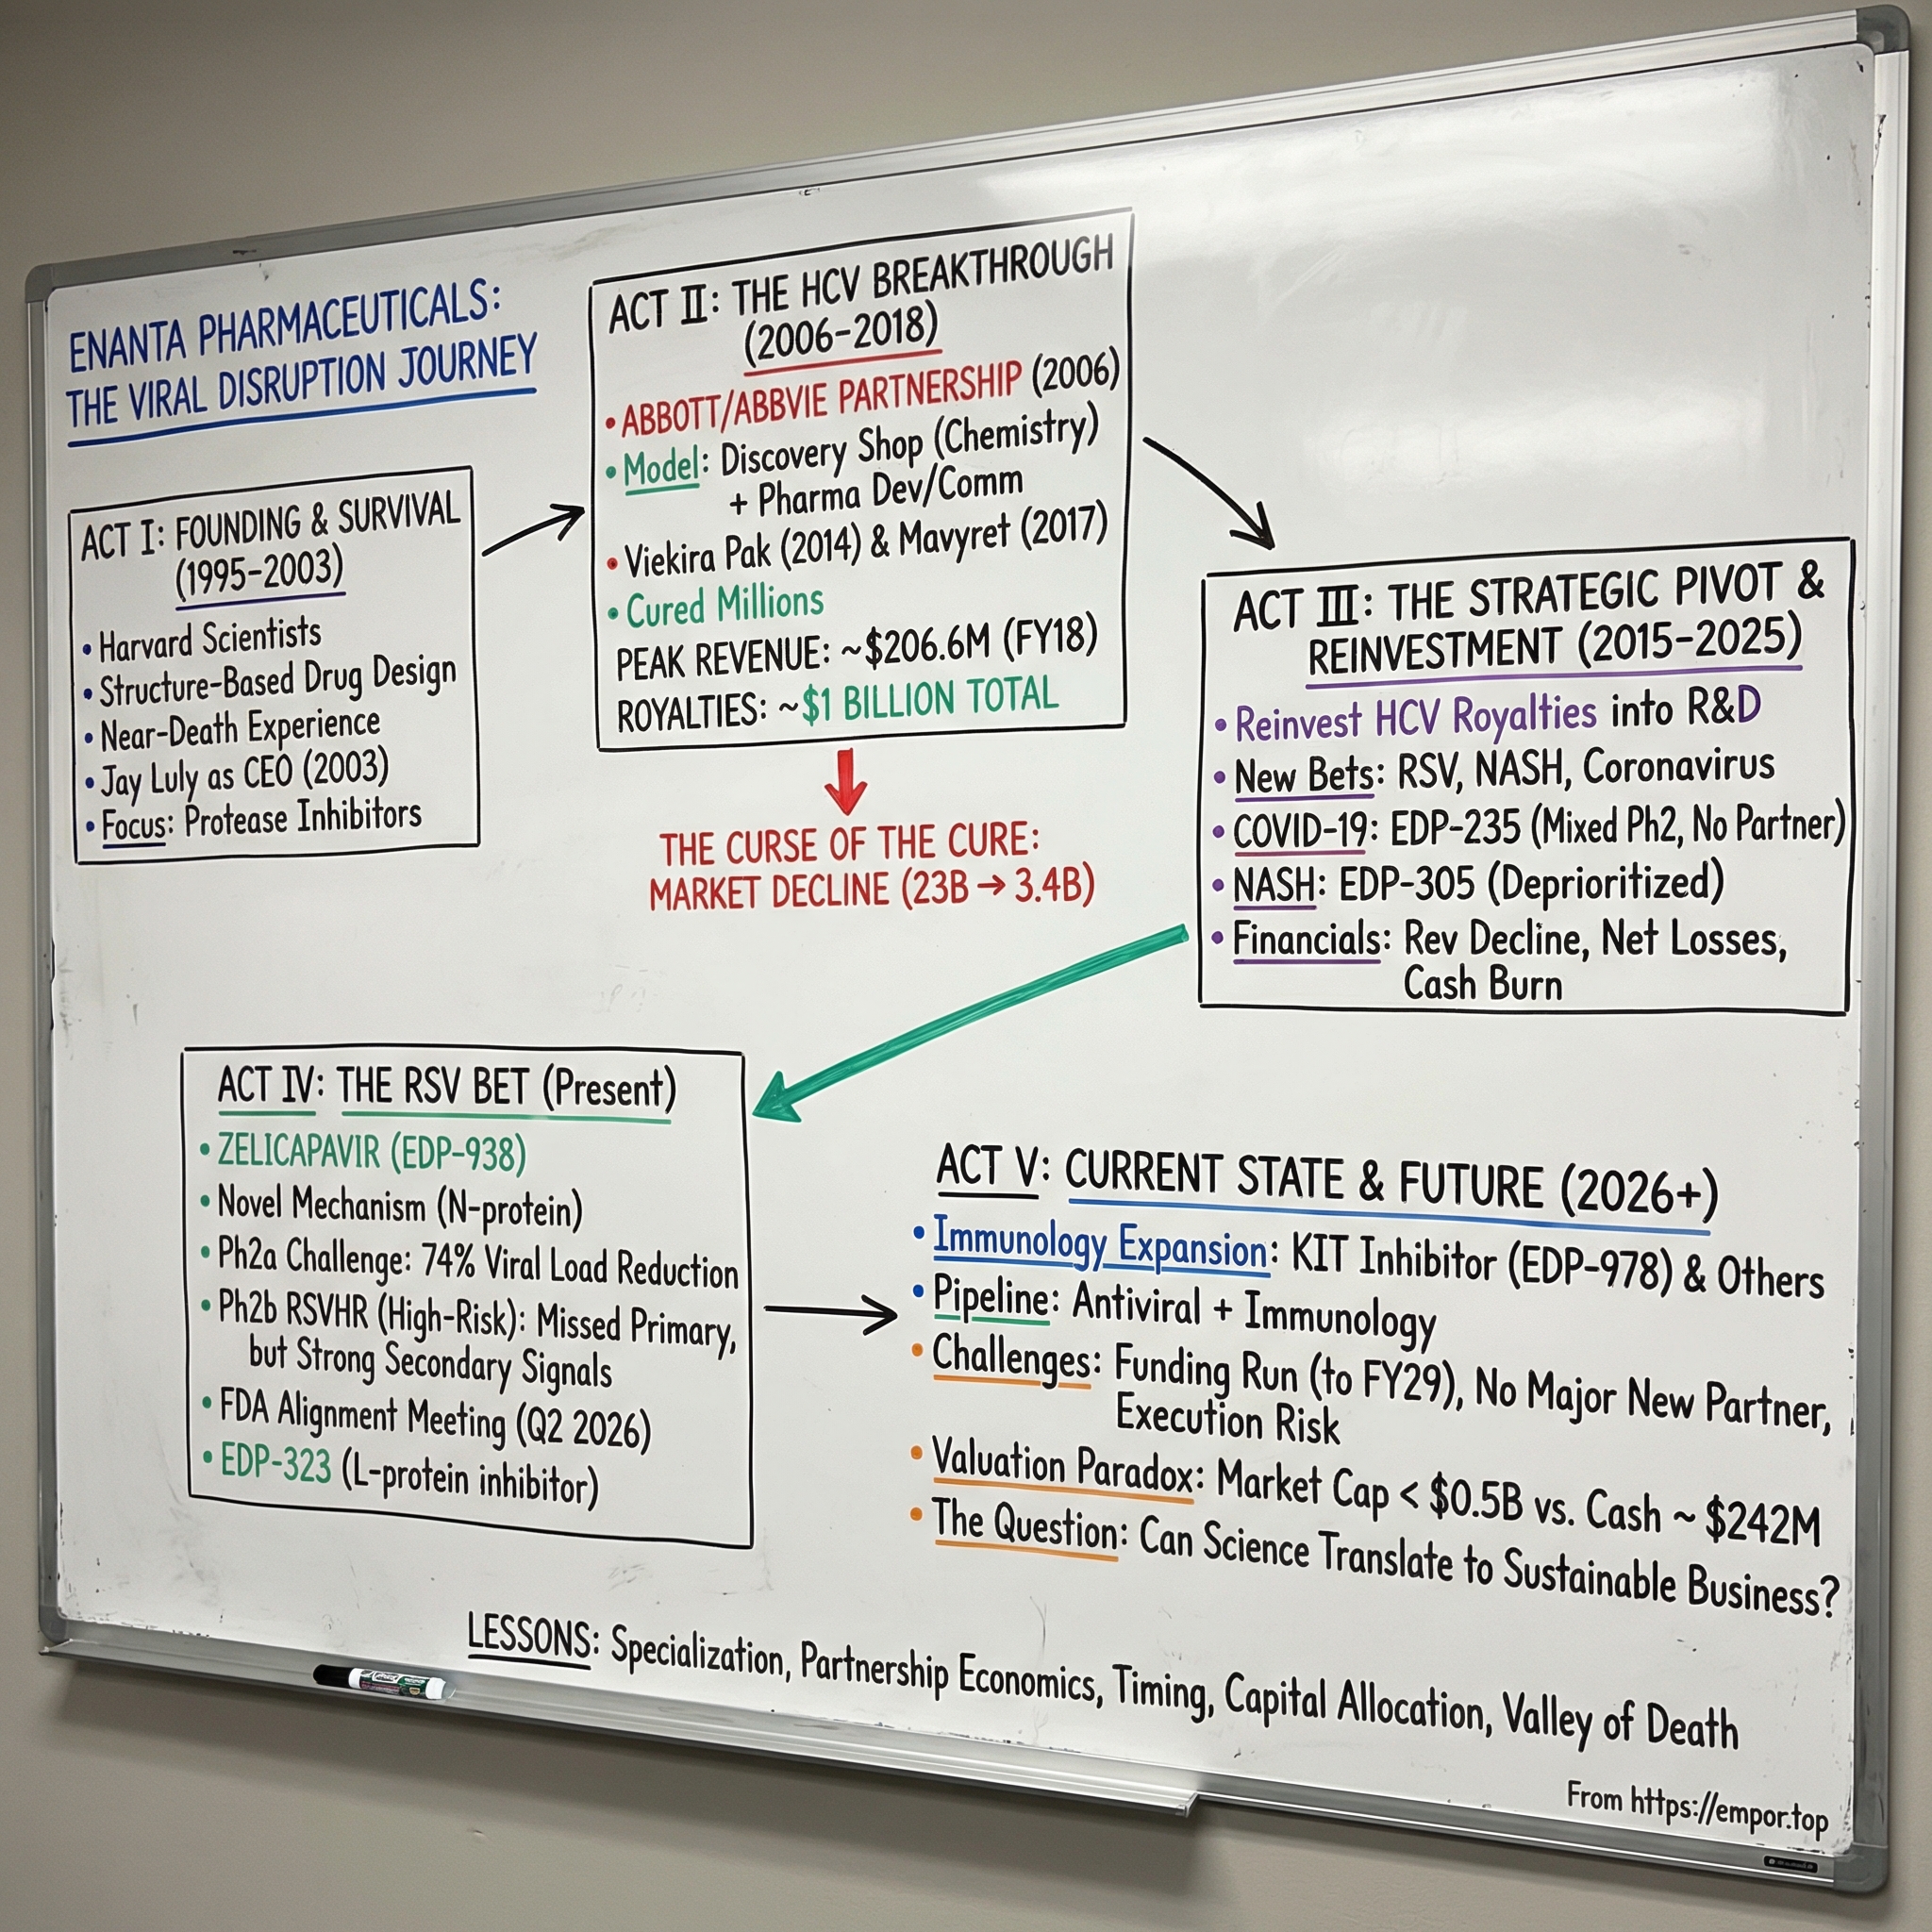 ENANTA PHARMACEUTICALS:
THE VIRAL DISRUPTION JOURNEY
ACT I: FOUNDING & SURVIVAL
(1995-2003)
• Harvard Scientists
• Structure-Based Drug Design
• Near-Death Experience
• Jay Luly as CEO (2003)
• Focus: Protease Inhibitors
ACT II: THE HCV BREAKTHROUGH
(2006-2018)
• ABBOTT/ABBVIE PARTNERSHIP (2006)
• Model: Discovery Shop (Chemistry)
+ Pharma Dev/Comm
• Viekira Pak (2014) & Mavyret (2017)
• Cured Millions
PEAK REVENUE: ~$206.6M (FY18)
ROYALTIES: ~$1 BILLION TOTAL
THE CURSE OF THE CURE:
MARKET DECLINE (23B → 3.4B)
ACT III: THE STRATEGIC PIVOT &
REINVESTMENT (2015-2025)
• Reinvest HCV Royalties into R&D
• New Bets: RSV, NASH, Coronavirus
• COVID-19: EDP-235 (Mixed Ph2, No Partner)
• NASH: EDP-305 (Deprioritized)
• Financials: Rev Decline, Net Losses,
Cash Burn
ACT IV: THE RSV BET (Present)
• ZELICAPAVIR (EDP-938)
• Novel Mechanism (N-protein)
• Ph2a Challenge: 74% Viral Load Reduction
• Ph2b RSVHR (High-Risk): Missed Primary,
but Strong Secondary Signals
• FDA Alignment Meeting (Q2 2026)
• EDP-323 (L-protein inhibitor)
ACT V: CURRENT STATE & FUTURE (2026+)
• Immunology Expansion: KIT Inhibitor (EDP-978) & Others
• Pipeline: Antiviral + Immunology
• Challenges: Funding Run (to FY29), No Major New Partner,
Execution Risk
• Valuation Paradox: Market Cap < $0.5B vs. Cash ~ $242M
• The Question: Can Science Translate to Sustainable Business?
LESSONS: Specialization, Partnership Economics, Timing, Capital Allocation, Valley of Death
From https://empor.top